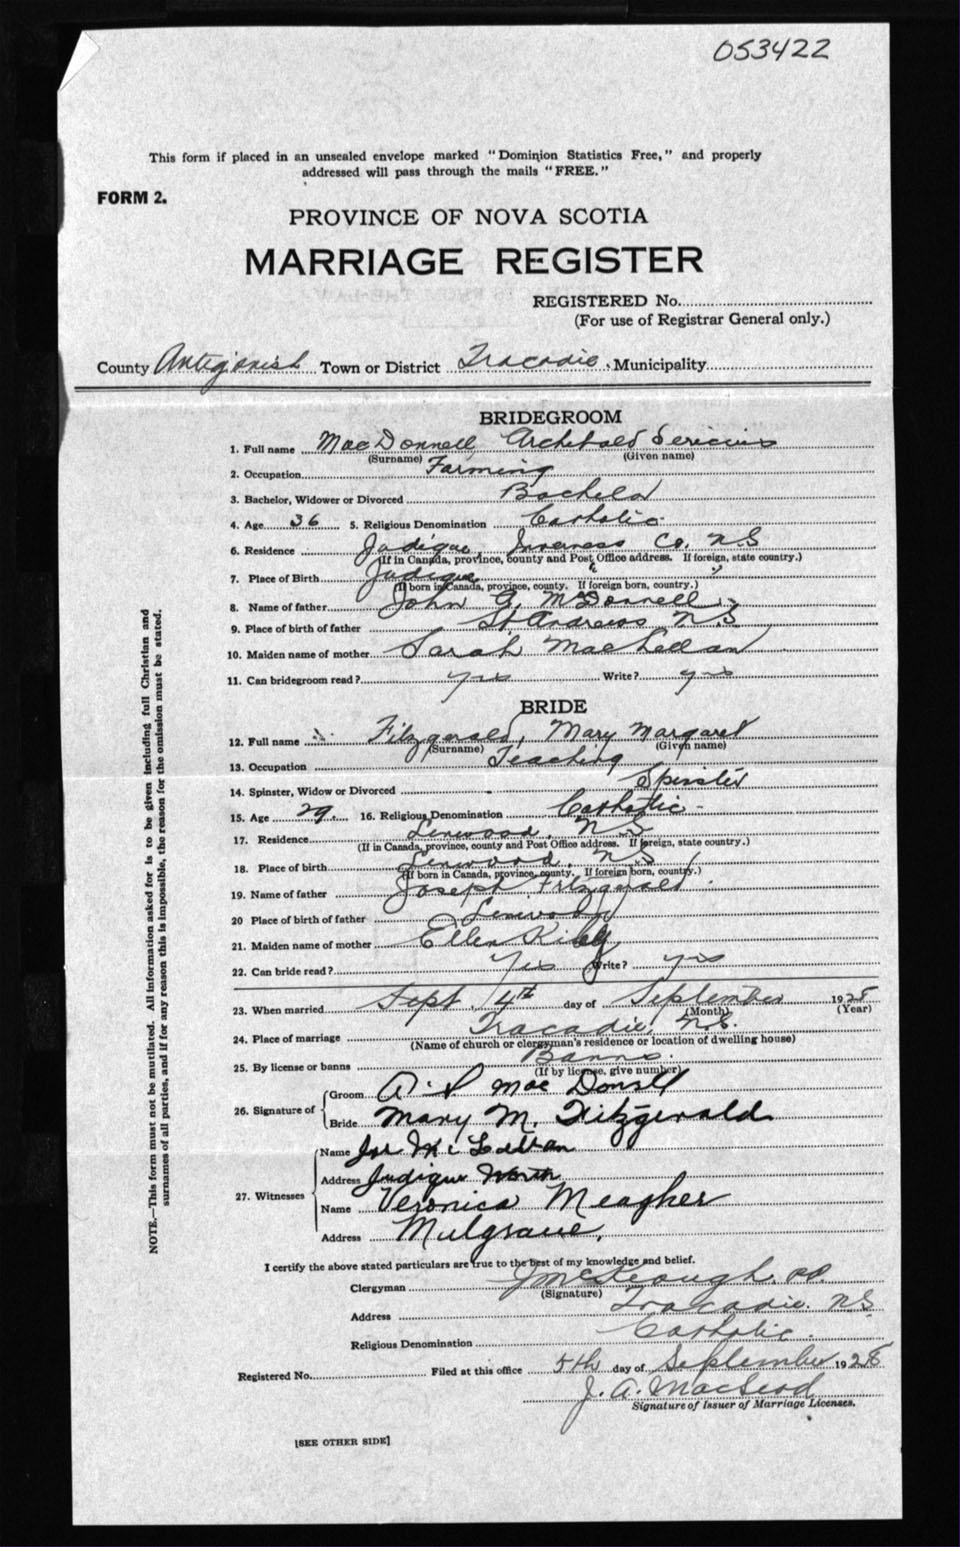 053422
This form if placed in an unsealed envelope marked "Dominion Statistics Free," and properly
addressed will pass through the mails "FREE."
FORM 2.
PROVINCE OF NOVA SCOTIA
MARRIAGE REGISTER
REGISTERED No.
(For use of Registrar General only.)
County Antigonish Town or District Tracadie Municipality
BRIDEGROOM
1. Full name MacDonnell, Archibald
(Surname) (Given name)
2. Occupation Farming
3. Bachelor, Widower or Divorced Bachelor
4. Age 36 5. Religious Denomination Catholic
6. Residence Judique, Inverness Co. N.S
(If in Canada, province, county and Post Office address. If foreign, state country.)
7. Place of Birth Judique " "
(If born in Canada, province, county. If foreign born, country.)
8. Name of father John A. McDonnell
9. Place of birth of father St Andrews N.S
10. Maiden name of mother Sarah MacLellan
11. Can bridegroom read? yes Write? yes
BRIDE
12. Full name Fitzgerald, Mary Margaret
(Surname) (Given name)
13. Occupation Teaching
14. Spinster, Widow or Divorced Spinster
15. Age 29. 16. Religious Denomination Catholic -
17. Residence Linwood, N.S
(If in Canada, province, county and Post Office address. If foreign, state country.)
18. Place of birth Linwood, N.S
(If born in Canada, province, county. If foreign born, country.)
19. Name of father Joseph Fitzgerald
20 Place of birth of father Linwood
21. Maiden name of mother Ellen
22. Can bride read? Yes Write? yes
23. When married Sept. 4th day of September 1928
(Month) (Year)
24. Place of marriage Tracadie, N.S.
(Name of church or clergyman's residence or location of dwelling house)
25. By license or banns Banns.
(If by license, give number)
26. Signature of
Groom MacDonell
Bride Mary M. Fitzgerald
27. Witnesses
Name Jos McLellan
Address Judique North
Name Veronica Meagher
Address Mulgrave,
I certify the above stated particulars are true to the best of my knowledge and belief.
Clergyman J McKeough, P.P.
(Signature)
Address Tracadie. N.S
Religious Denomination Catholic.
Registered No. Filed at this office 5th day of September 1928
J. A. MacLeod
Signature of Issuer of Marriage Licenses.
[SEE OTHER SIDE]
NOTE.—This form must not be mutilated. All information asked for is to be given including full Christian and
surnames of all parties, and if for any reason this is impossible, the reason for the omission must be stated.